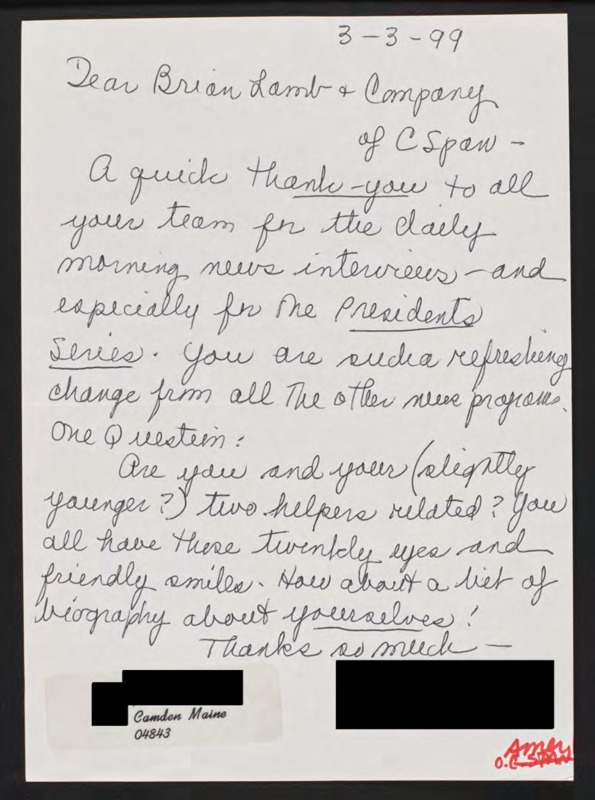 3-3-99
Dear Brian Lamb & Company
of C Span -
A quick thank-you to all
your team for the daily
morning news interviews - and
especially for the Presidents
Series. You are such a refreshing
change from all the other news programs.
One Question:
Are you and your (slightly
younger?) two helpers related? You
all have those twinkly eyes and
friendly smiles. How about a bit of
biography about yourselves!
Thanks so much -
Camden Maine
04843